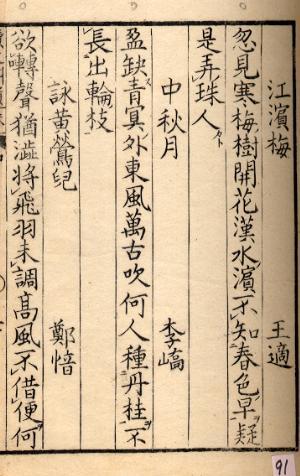 江濱梅 王適
忽見寒梅樹開花漢水濱不知春色早疑
是弄珠人
中秋月 李嶠
盈缺青冥外東風萬古吹何人種丹桂不
長出輪枝
詠黄鶯兒 鄭愔
欲囀聲猶澁將飛羽未調高風不借便何
91